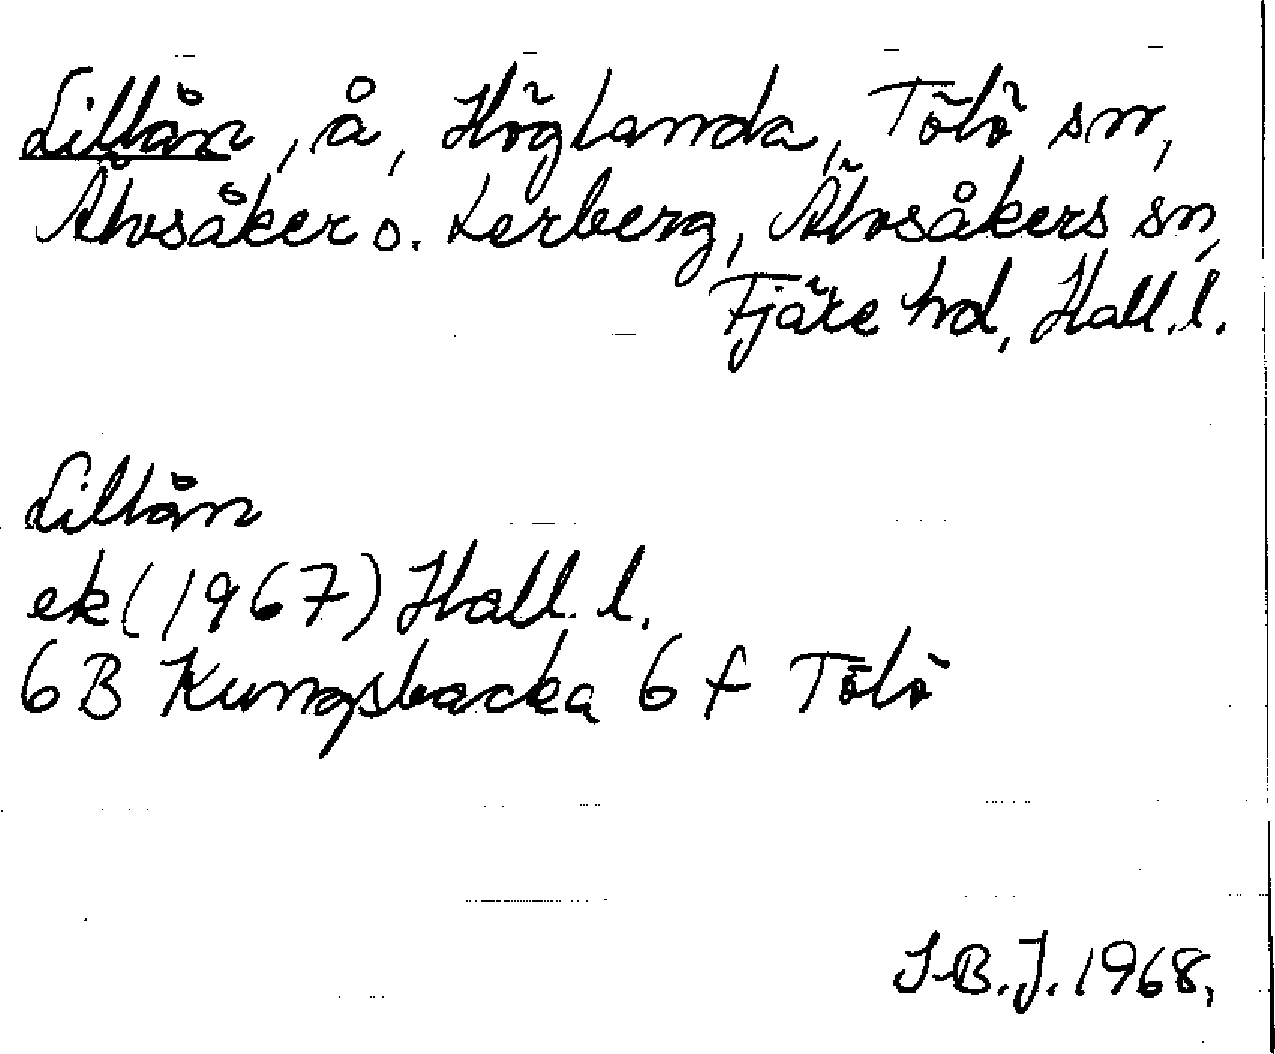 Lillån, å, Höglanda, Tölö sn,
Älvsåker o. Lerberg, Älvsåkers sn,
Fjäre hd, Hall. l.
Lillån
ek (1967) Hall. l.
6B Kungsbacka 6 f Tölö
I-B. J. 1968.